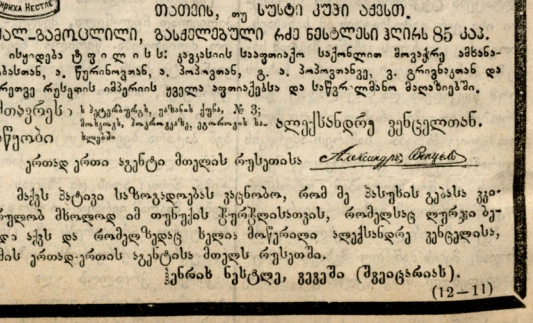 ჩრიха НЕСТЛЕ
თათვის, თუ სუსტი კუჭი აქვსთ.
გამოცლილი, გასქელებული რძე ნესტლესი ჰღირს 85 კაპ.
ისყიდება ტფილისს: კავკასიის სააფთიაქო საქონლით მოვაჭრე ამხანა-
ა. წურინოვთან, ა. პოპოვთან, გ. ა. პოპოვთანვე, ვ. გრივნაკთან და
რეთვე რუსეთის იმპერიის ყველა აფთიაქებსა და საწვრილმანო მაღაზიებში.
ს პეტერბურგს, ყაზანის ქუჩა, № 3;
მოსკოვს, პოკროვკაზე, ეგოროვის სა-
ხლებში
ალექსანდრე ვენცელთან.
ერთად ერთი აგენტი მთელის რუსეთისა Александръ Венцель
მაქვს პატივი საზოგადოებას ვაცნობო, რომ მე პასუხის გებასა ვკი-
მხოლოდ იმ თუნუქის ჭურჭლისათვის, რომელსაც ლურჯი ბე-
აქვს და რომელზედაც ხელია მოწერილი ალექსანდრე ვენცელისა,
ერთად-ერთის აგენტისა მთელს რუსეთში.
ჰენრის ნესტლე, ვევეში (შვეიცარიას).
(12—11)